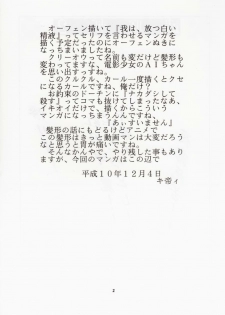 オーフェン描いて『我は、放つ白い
精液』ってセリフを言わせるマンガを
描く予定だったのにオーフェンぬきに
なっちまいましたね。
クリーオウって名前も変だけど髪形も
変わってますな、電影少女のAIちゃん
を思い出すっすね。
このクルクル、カール一度描くとクセ
になるカールですね、俺だけ？
お約束のドーチンに『ナカダシして
殺す』ってコマも抜けてしまったなぁ、
イキオイだけで、描くからこういう
マンガになっちまうんだなぁ。
『あぃすいません』
髪形の話にもどるけどアニメで
この髪形はきっと動画マンは大変だろう
なと思うと胃が痛いですね。
そんなかんやで、やり残した事もあり
ますが、今回のマンガはこの辺で
平成10年12月4日
キ帝ィ
2